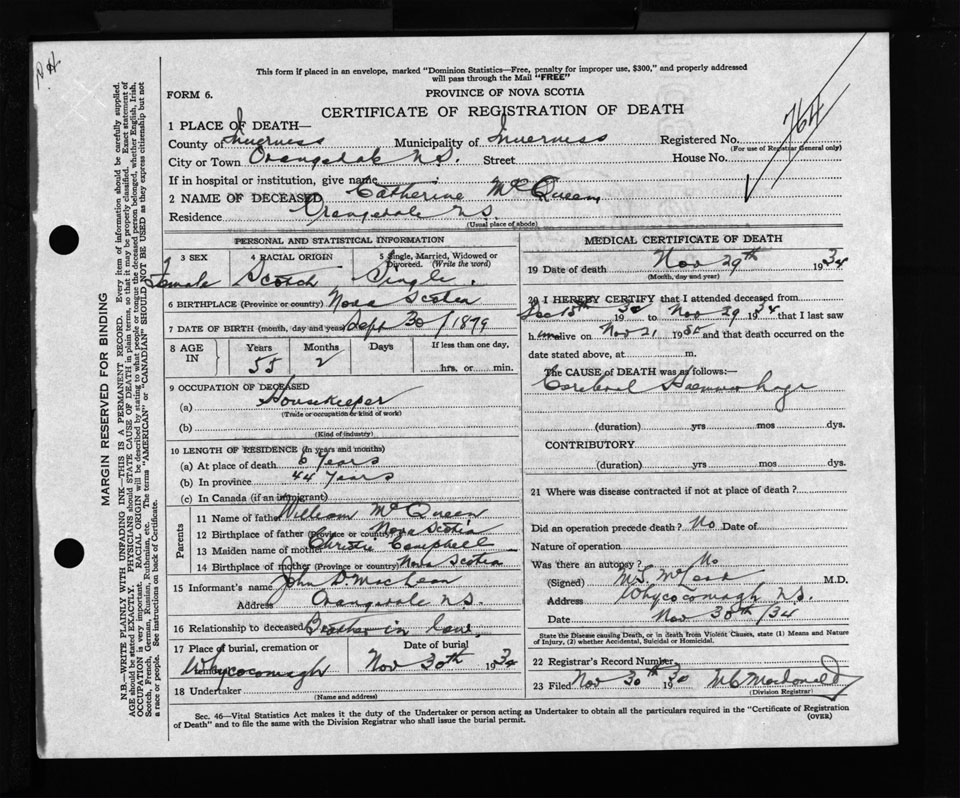 This form if placed in an envelope, marked "Dominion Statistics—Free, penalty for improper use, $300," and properly addressed
will pass through the Mail "FREE"
FORM 6.
PROVINCE OF NOVA SCOTIA
CERTIFICATE OF REGISTRATION OF DEATH
764
1 PLACE OF DEATH—
County of Inverness Municipality of Inverness Registered No.
(For use of Registrar General only)
City or Town Orangedale N.S. Street House No.
If in hospital or institution, give name
2 NAME OF DECEASED Catherine McQueen
Residence Orangedale N.S.
(Usual place of abode)
PERSONAL AND STATISTICAL INFORMATION
3 SEX 4 RACIAL ORIGIN 5 Single, Married, Widowed or Divorced. (Write the word)
Female Scotch Single.
6 BIRTHPLACE (Province or country) Nova Scotia
7 DATE OF BIRTH (month, day and year) Sept 30/1879
8 AGE IN Years Months Days If less than one day,
55 2 hrs. or min.
9 OCCUPATION OF DECEASED
(a) Housekeeper
(Trade or occupation or kind of work)
(b)
(Kind of industry)
10 LENGTH OF RESIDENCE (In years and months)
(a) At place of death 6 Years
(b) In province 44 Years
(c) In Canada (if an immigrant)
Parents
11 Name of father William McQueen
12 Birthplace of father (Province or country) Nova Scotia
13 Maiden name of mother Christie Campbell
14 Birthplace of mother (Province or country) Nova Scotia
15 Informant's name John D. MacLean
Address Orangedale N.S.
16 Relationship to deceased Brother in law.
17 Place of burial, cremation or Date of burial
Whycocomagh Nov 30th 1934
18 Undertaker
(Name and address)
MEDICAL CERTIFICATE OF DEATH
19 Date of death Nov 29th 1934
(Month, day and year)
20 I HEREBY CERTIFY that I attended deceased from
Dec 15th 19 to Nov 29 1934 that I last saw
h alive on Nov 21 19 and that death occurred on the
date stated above, at m.
The CAUSE of DEATH was as follows:—
Cerebral Haemorrhage
(duration) yrs mos dys.
CONTRIBUTORY
(duration) yrs mos dys.
21 Where was disease contracted if not at place of death?
Did an operation precede death? No Date of
Nature of operation
Was there an autopsy? No
(Signed) M.D.
Address Whycocomagh N.S.
Date Nov 30th/34
State the Disease causing Death, or in death from Violent Causes, state (1) Means and Nature
of Injury, (2) whether Accidental, Suicidal or Homicidal.
22 Registrar's Record Number
23 Filed Nov 30th 19 Macdonald
(Division Registrar)
Sec. 46—Vital Statistics Act makes it the duty of the Undertaker or person acting as Undertaker to obtain all the particulars required in the "Certificate of Registration
of Death" and to file the same with the Division Registrar who shall issue the burial permit.
(OVER)
MARGIN RESERVED FOR BINDING
N.B.—WRITE PLAINLY WITH UNFADING INK—THIS IS A PERMANENT RECORD. Every item of information should be carefully supplied.
AGE should be stated EXACTLY. PHYSICIANS should STATE CAUSE OF DEATH in plain terms, so that it may be properly classified. Exact statement of
OCCUPATION is very important. RACIAL ORIGIN will be described by stating to what people or tongue the deceased person belonged, whether English, Irish,
Scotch, French, German, Russian, Ruthenian, etc. The terms "AMERICAN" or "CANADIAN" SHOULD NOT BE USED as they express citizenship but not
a race or people. See instructions on back of Certificate.